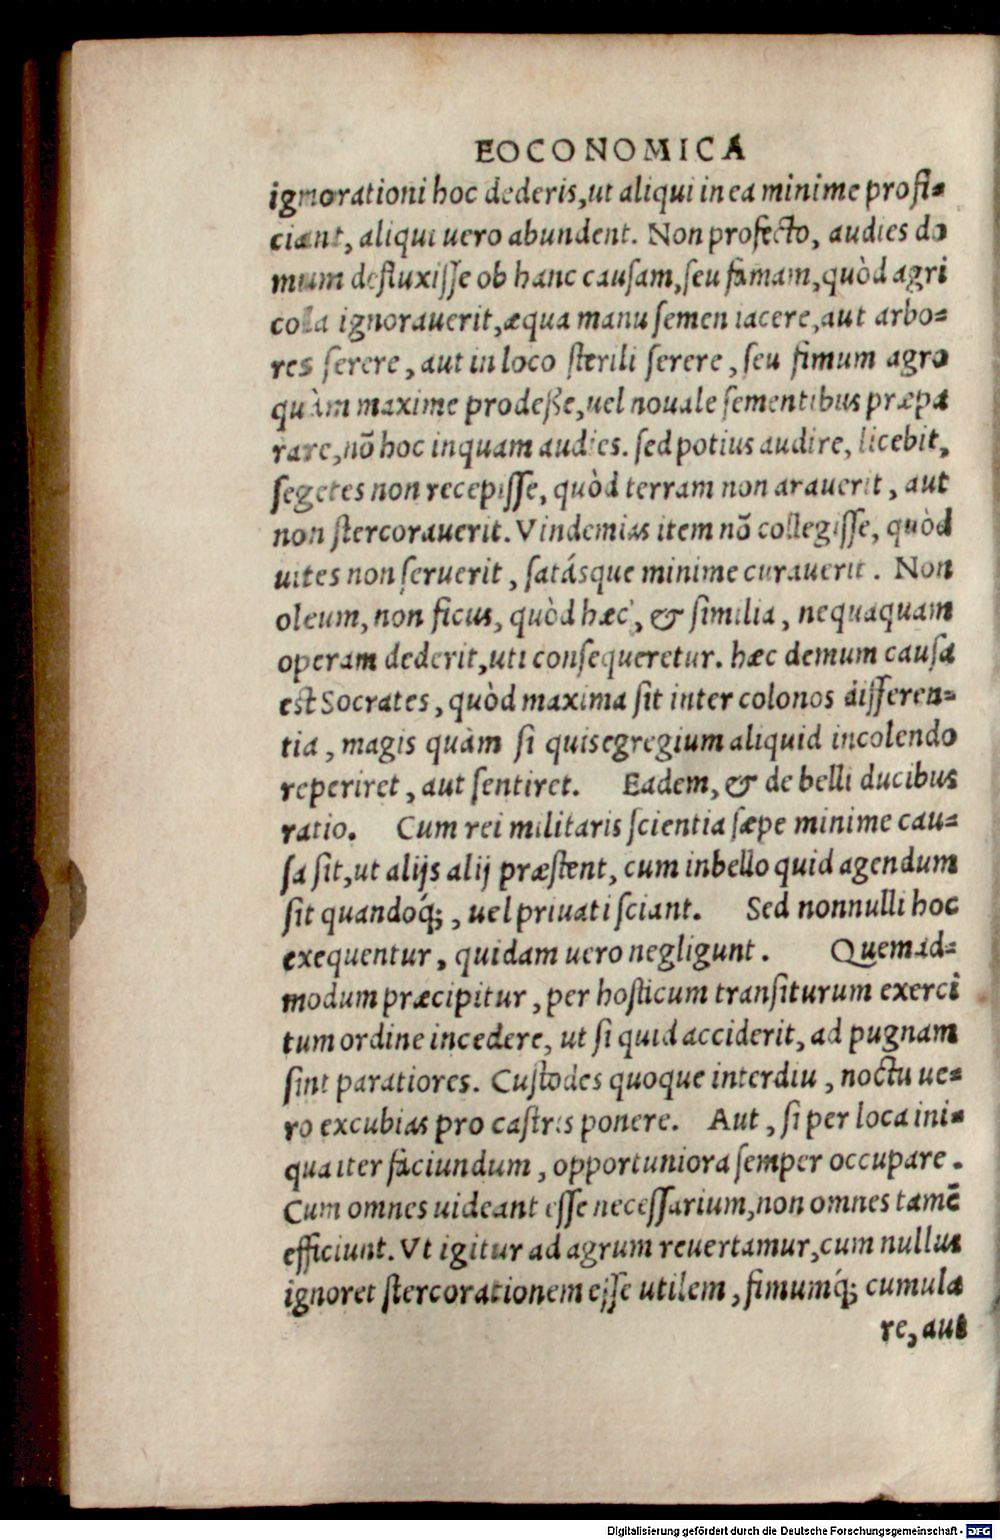 EOCONOMICA
ignorationi hoc dederis, ut aliqui in ea minime profi-
ciant, aliqui uero abundent. Non profecto, audies do
mum defluxisse ob hanc causam, seu famam, quòd agri
cola ignorauerit, æqua manu semen iacere, aut arbo-
res serere, aut in loco sterili serere, seu fimum agro
quàm maxime prodesse, uel nouale sementibus præpa
rare, nō hoc inquam audies. sed potius audire, licebit,
segetes non recepisse, quòd terram non arauerit, aut
non stercorauerit. Vindemias item nō collegisse, quòd
uites non seruerit, satásque minime curauerit. Non
oleum, non ficus, quòd hæc, & similia, nequaquam
operam dederit, uti consequeretur. hæc demum causa
est Socrates, quòd maxima sit inter colonos differen-
tia, magis quàm si quis egregium aliquid incolendo
reperiret, aut sentiret. Eadem, & de belli ducibus
ratio. Cum rei militaris scientia sæpe minime cau-
sa sit, ut alijs alij præstent, cum in bello quid agendum
sit quandoq́;, uel priuati sciant. Sed nonnulli hoc
exequentur, quidam uero negligunt. Quemad-
modum præcipitur, per hosticum transiturum exerci
tum ordine incedere, ut si quid acciderit, ad pugnam
sint paratiores. Custodes quoque interdiu, noctu ue-
ro excubias pro castris ponere. Aut, si per loca ini-
qua iter faciundum, opportuniora semper occupare.
Cum omnes uideant esse necessarium, non omnes tamē
efficiunt. Vt igitur ad agrum reuertamur, cum nullus
ignoret stercorationem esse utilem, fimumq́; cumula
re, aut
Digitalisierung gefördert durch die Deutsche Forschungsgemeinschaft - DFG